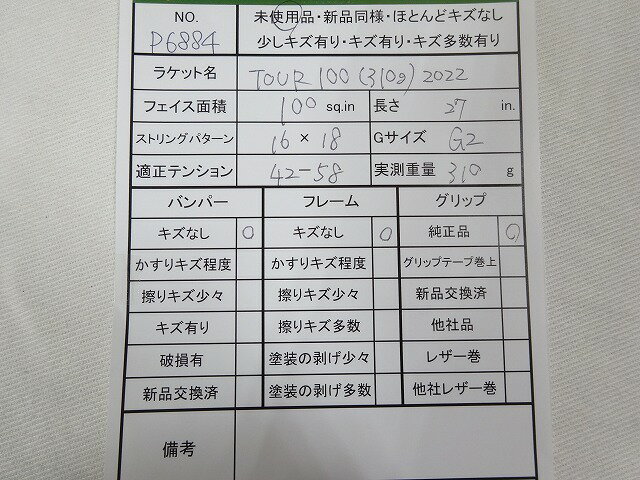 NO.
P6884
未使用品・新品同様・ほとんどキズなし
少しキズ有り・キズ有り・キズ多数有り
ラケット名 TOUR 100 (310g) 2022
フェイス面積 100 sq.in 長さ 27 in.
ストリングパターン 16 × 18 Gサイズ G2
適正テンション 42-58 実測重量 310 g
バンパー フレーム グリップ
キズなし ○ キズなし ○ 純正品 ○
かすりキズ程度 かすりキズ程度 グリップテープ巻上
擦りキズ少々 擦りキズ少々 新品交換済
キズ有り 擦りキズ多数 他社品
破損有 塗装の剥げ少々 レザー巻
新品交換済 塗装の剥げ多数 他社レザー巻
備考